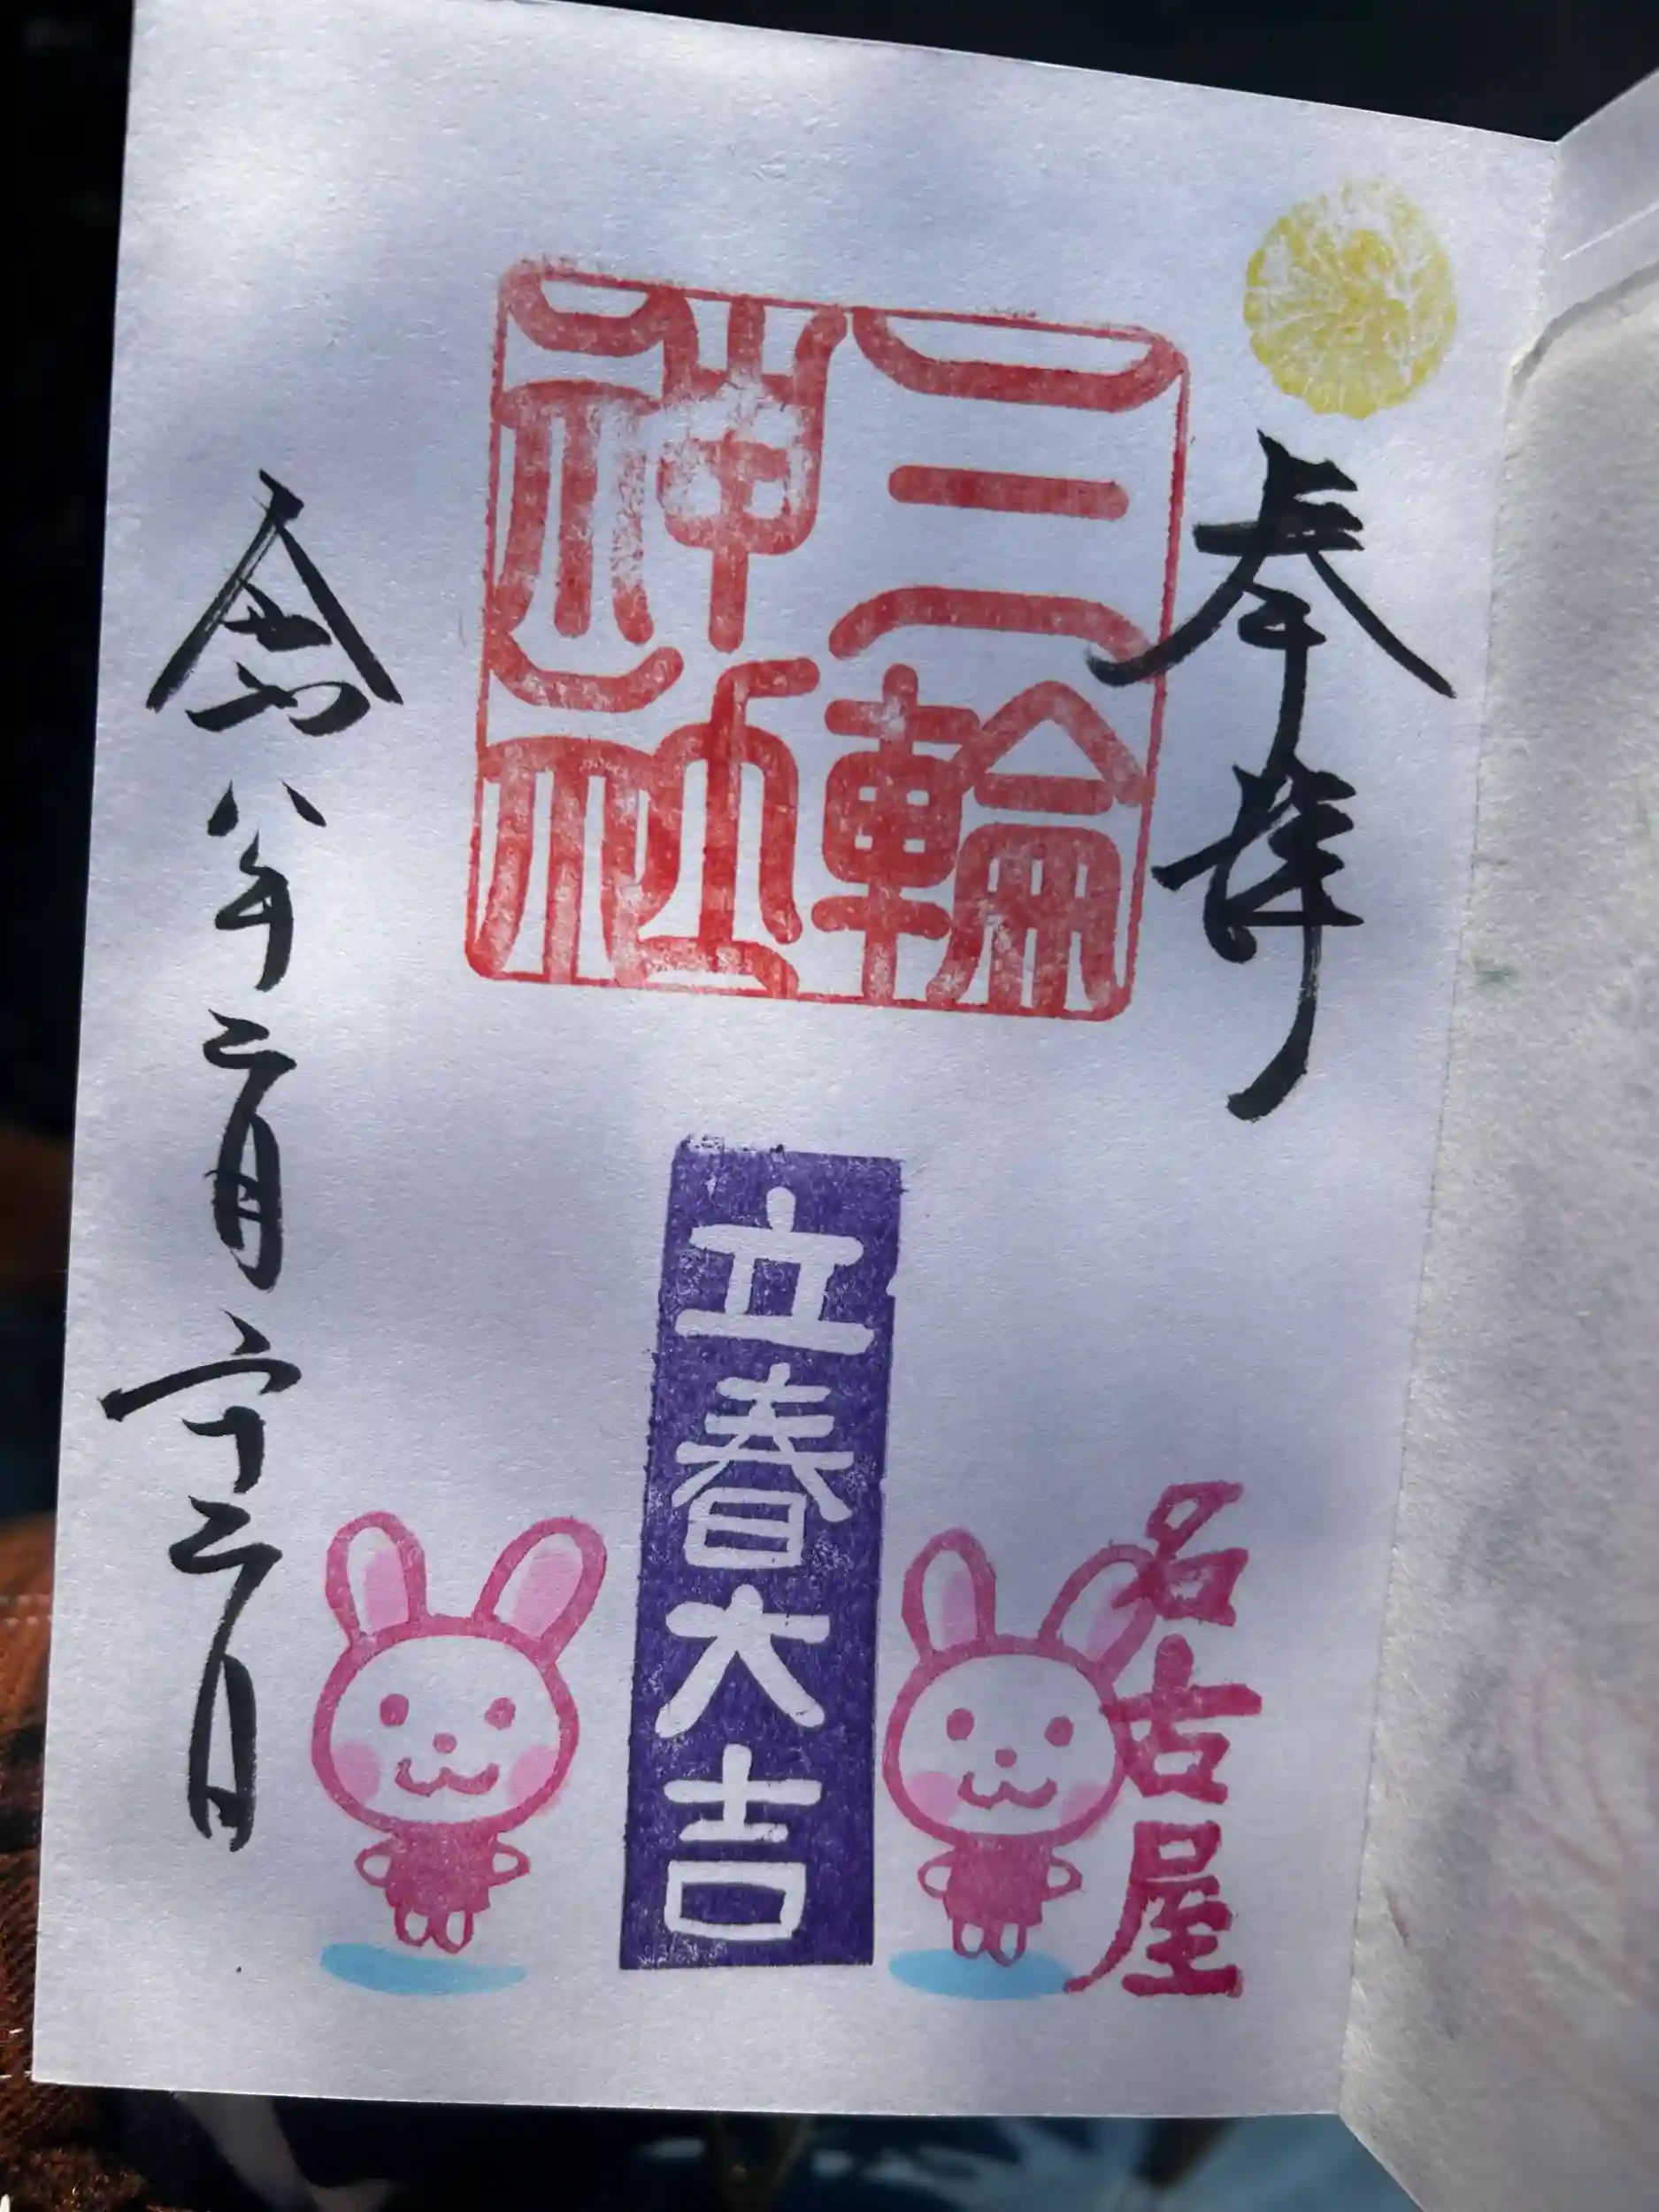 奉拝
三輪
神社
立春大吉
名古屋
令和八年二月二十二日